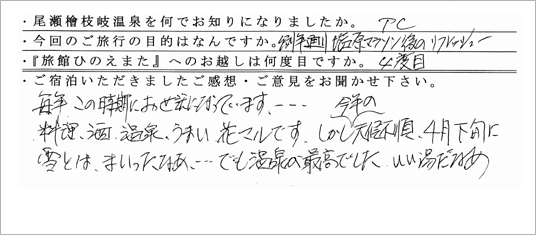 ・尾瀬檜枝岐温泉を何でお知りになりましたか。 PC
・今回のご旅行の目的はなんですか。例年通り 塩原マラソン後のリフレッシュ
・『旅館ひのえまた』へのお越しは何度目ですか。 4度目
・ご宿泊いただきましたご感想・ご意見をお聞かせ下さい。
毎年この時期にお世話になっています、--- 今年の
料理、酒、温泉、うまい 花マルです。しかし天候不順、4月下旬に
雪とは、まいったなあ、--- でも温泉は最高でした いい湯だなあ